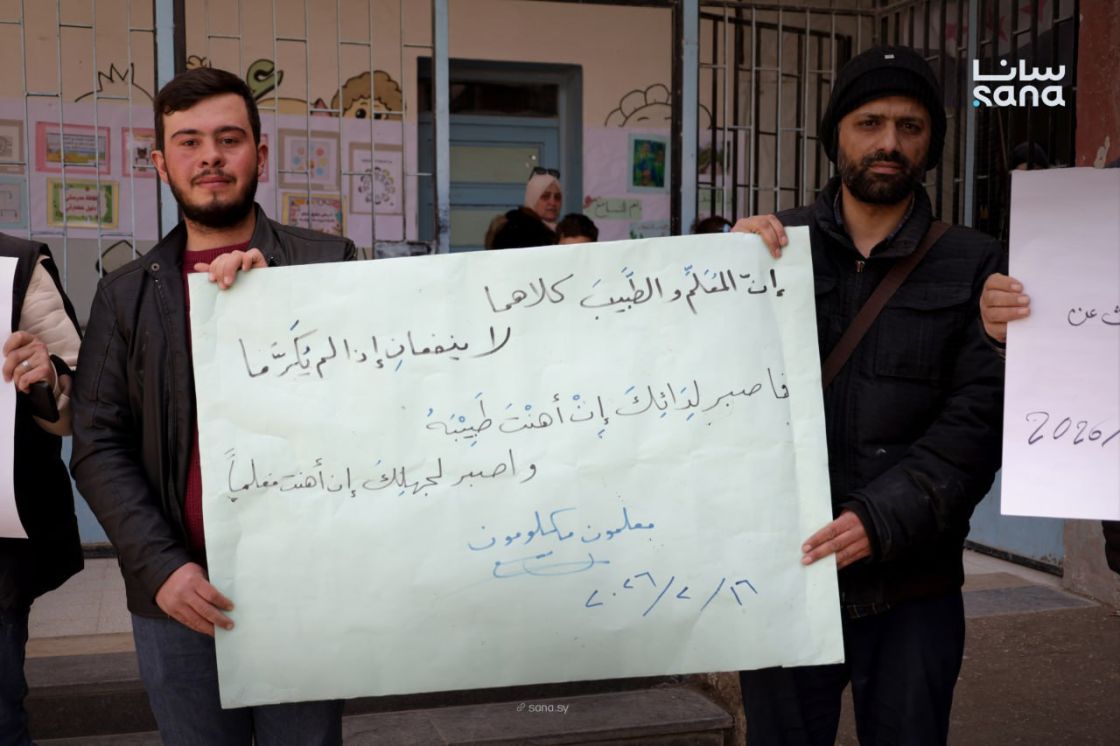 سانا
sana
إنّ المُعَلِّمَ والطَّبِيبَ كلاهما
لا ينفعانِ إذا لم يُكَرَّما
فاصبر لِدَائِكَ إنْ أهنْتَ طَبِيْبَهُ
واصبر لجهلِكَ إن أهنت معلماً
معلمون مكلومون
١٦/٢/٢٠٢٦
عن
2026/
sana.sy